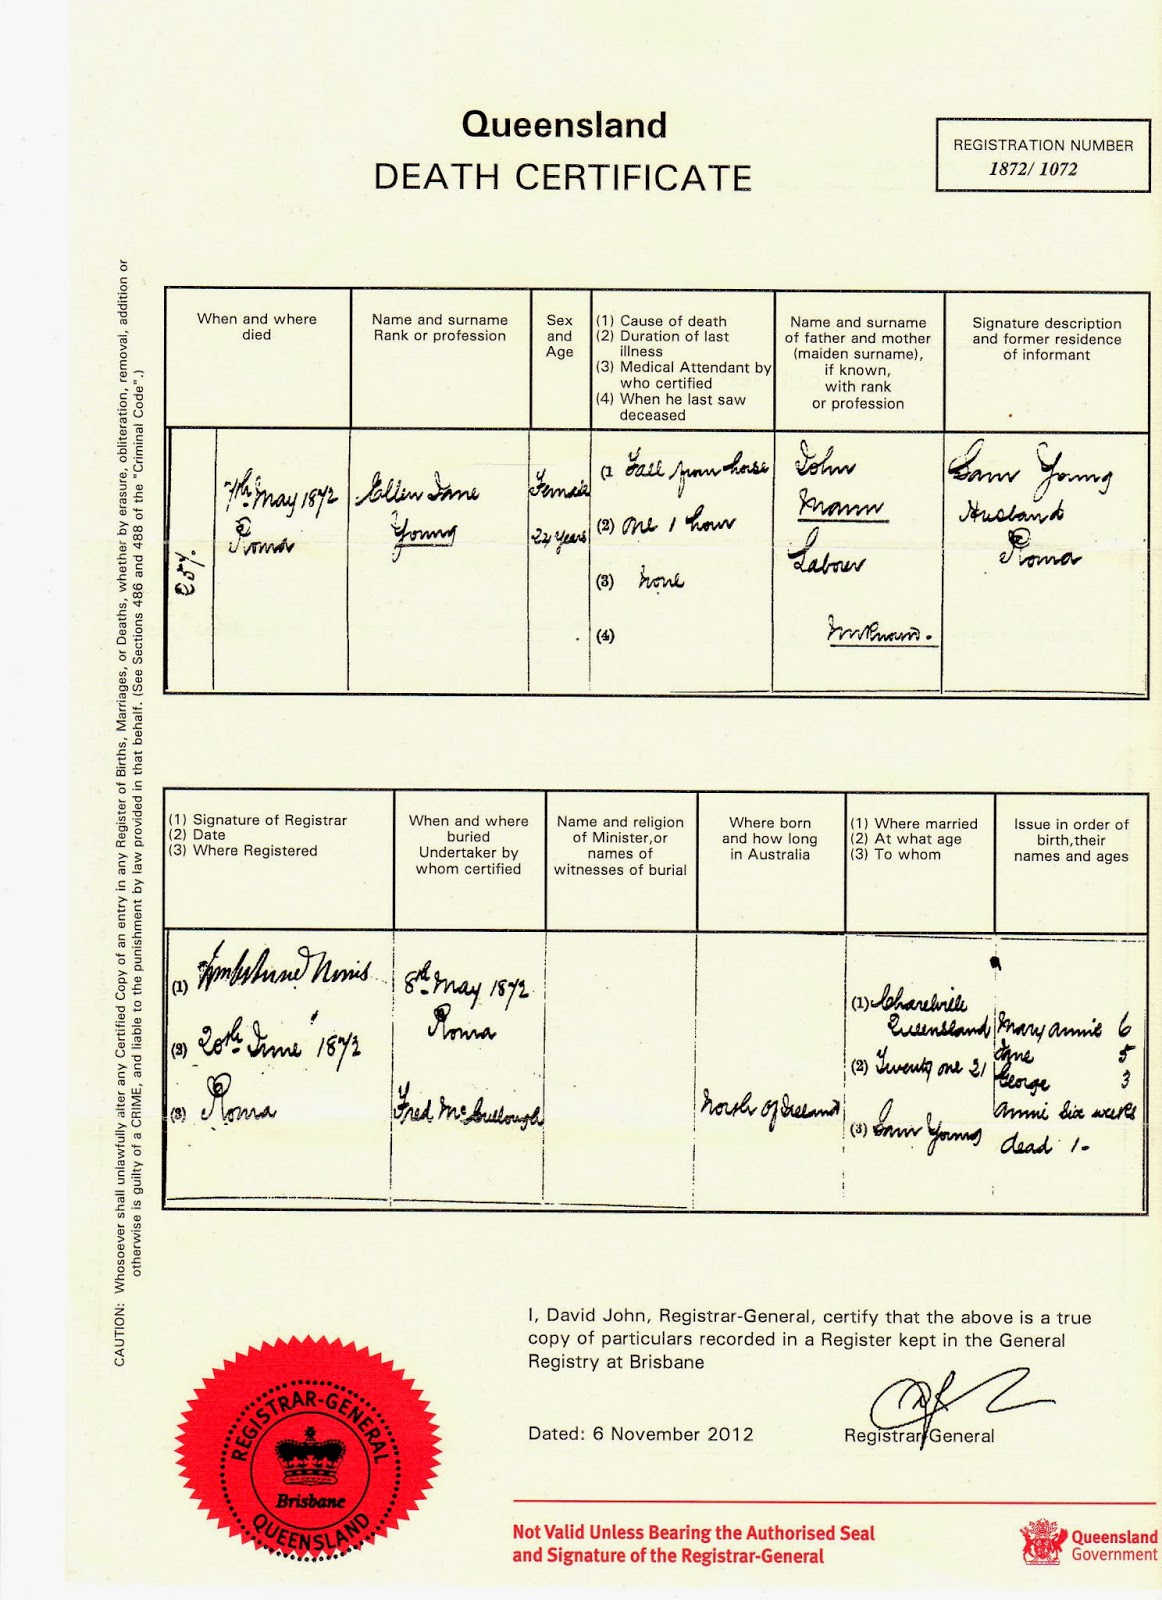 Queensland
DEATH CERTIFICATE
REGISTRATION NUMBER
1872/ 1072
CAUTION: Whosoever shall unlawfully alter any Certified Copy of an entry in any Register of Births, Marriages, or Deaths, whether by erasure, obliteration, removal, addition or
otherwise is guilty of a CRIME, and liable to the punishment by law provided in that behalf. (See Sections 486 and 488 of the "Criminal Code".)
When and where
died
Name and surname
Rank or profession
Sex
and
Age
(1) Cause of death
(2) Duration of last
illness
(3) Medical Attendant by
who certified
(4) When he last saw
deceased
Name and surname
of father and mother
(maiden surname),
if known,
with rank
or profession
Signature description
and former residence
of informant
7th May 1872
Roma
Ellen Jane
Young
Female
22 years
(1 Fall from horse
(2) One 1 hour
(3) None
(4)
John
Mann
Labour
Unknown.
Sam Young
Husband
Roma
(1) Signature of Registrar
(2) Date
(3) Where Registered
When and where
buried
Undertaker by
whom certified
Name and religion
of Minister,or
names of
witnesses of burial
Where born
and how long
in Australia
(1) Where married
(2) At what age
(3) To whom
Issue in order of
birth,their
names and ages
(1)
(2) 20th June 1872
(3) Roma
8th May 1872
Roma
Fred McCullough
North Of Ireland
(1) Charelville
Queensland
(2) Twenty one 21
(3) Sam Young
Mary Annie 6
Jane 5
George 3
Annie six weeks
dead 1-
I, David John, Registrar-General, certify that the above is a true
copy of particulars recorded in a Register kept in the General
Registry at Brisbane
Dated: 6 November 2012
Registrar-General
REGISTRAR-GENERAL
Brisbane
QUEENSLAND
Not Valid Unless Bearing the Authorised Seal
and Signature of the Registrar-General
Queensland
Government